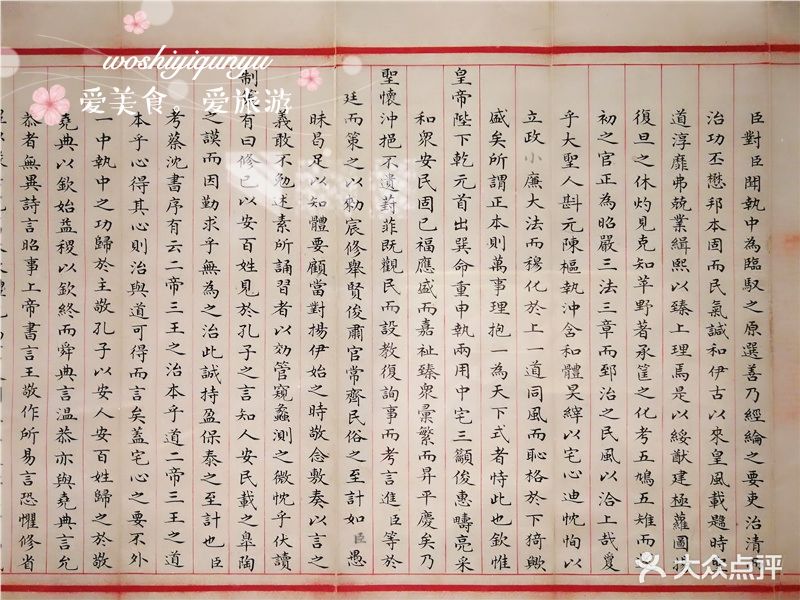 woshiyiqunyu
爱美食。爱旅游
臣對臣聞執中為臨馭之原選善乃經綸之要吏治清
治功丕懋邦本固而民氣誠和伊古以來皇風載颺時
道淳靡弗兢業緝熙以臻上理焉是以綏猷建極蘿圖
復旦之休灼見克知莘野著承筐之化考五鳩五雉而
初之官正為昭嚴三法三章而郅治之民風以洽上哉夐
乎大聖人斟元陳樞執沖含和體昊縡以宅心迪忱恂以
立政小廉大法而穆化於上一道同風而恥格於下猗歟
盛矣所謂正本則萬事理抱一為天下式者恃此也欽惟
皇帝陛下乾元首出巽命重申執兩用中宅三籲俊惠疇亮采
和衆安民固已福應盛而嘉祉臻衆彙繁而昇平慶矣乃
聖懷沖挹不遺葑菲既觀民而設教復詢事而考言進臣等於
廷而策之以勑宸修舉賢俊肅官常齊民俗之至計如臣愚
昧曷足以知體要顧當對揚伊始之時敬念敷奏以言之
義敢不勉述素所誦習者以効管窺蠡測之微忱乎伏讀
制有曰修已以安百姓見於孔子之言知人安民載之臯陶
之謨而因勤求乎無為之治此誠持盈保泰之至計也臣
考蔡沈書序有云二帝三王之治本乎道二帝三王之道
本乎心得其心則治與道可得而言矣蓋宅心之要不外
一中執中之功歸於主敬孔子以安人安百姓歸之於敬
堯典以欽始益稷以欽終而舜典言温恭亦與堯典言允
恭者無異詩言昭事上帝書言王敬作所易言恐懼修省
大众点评